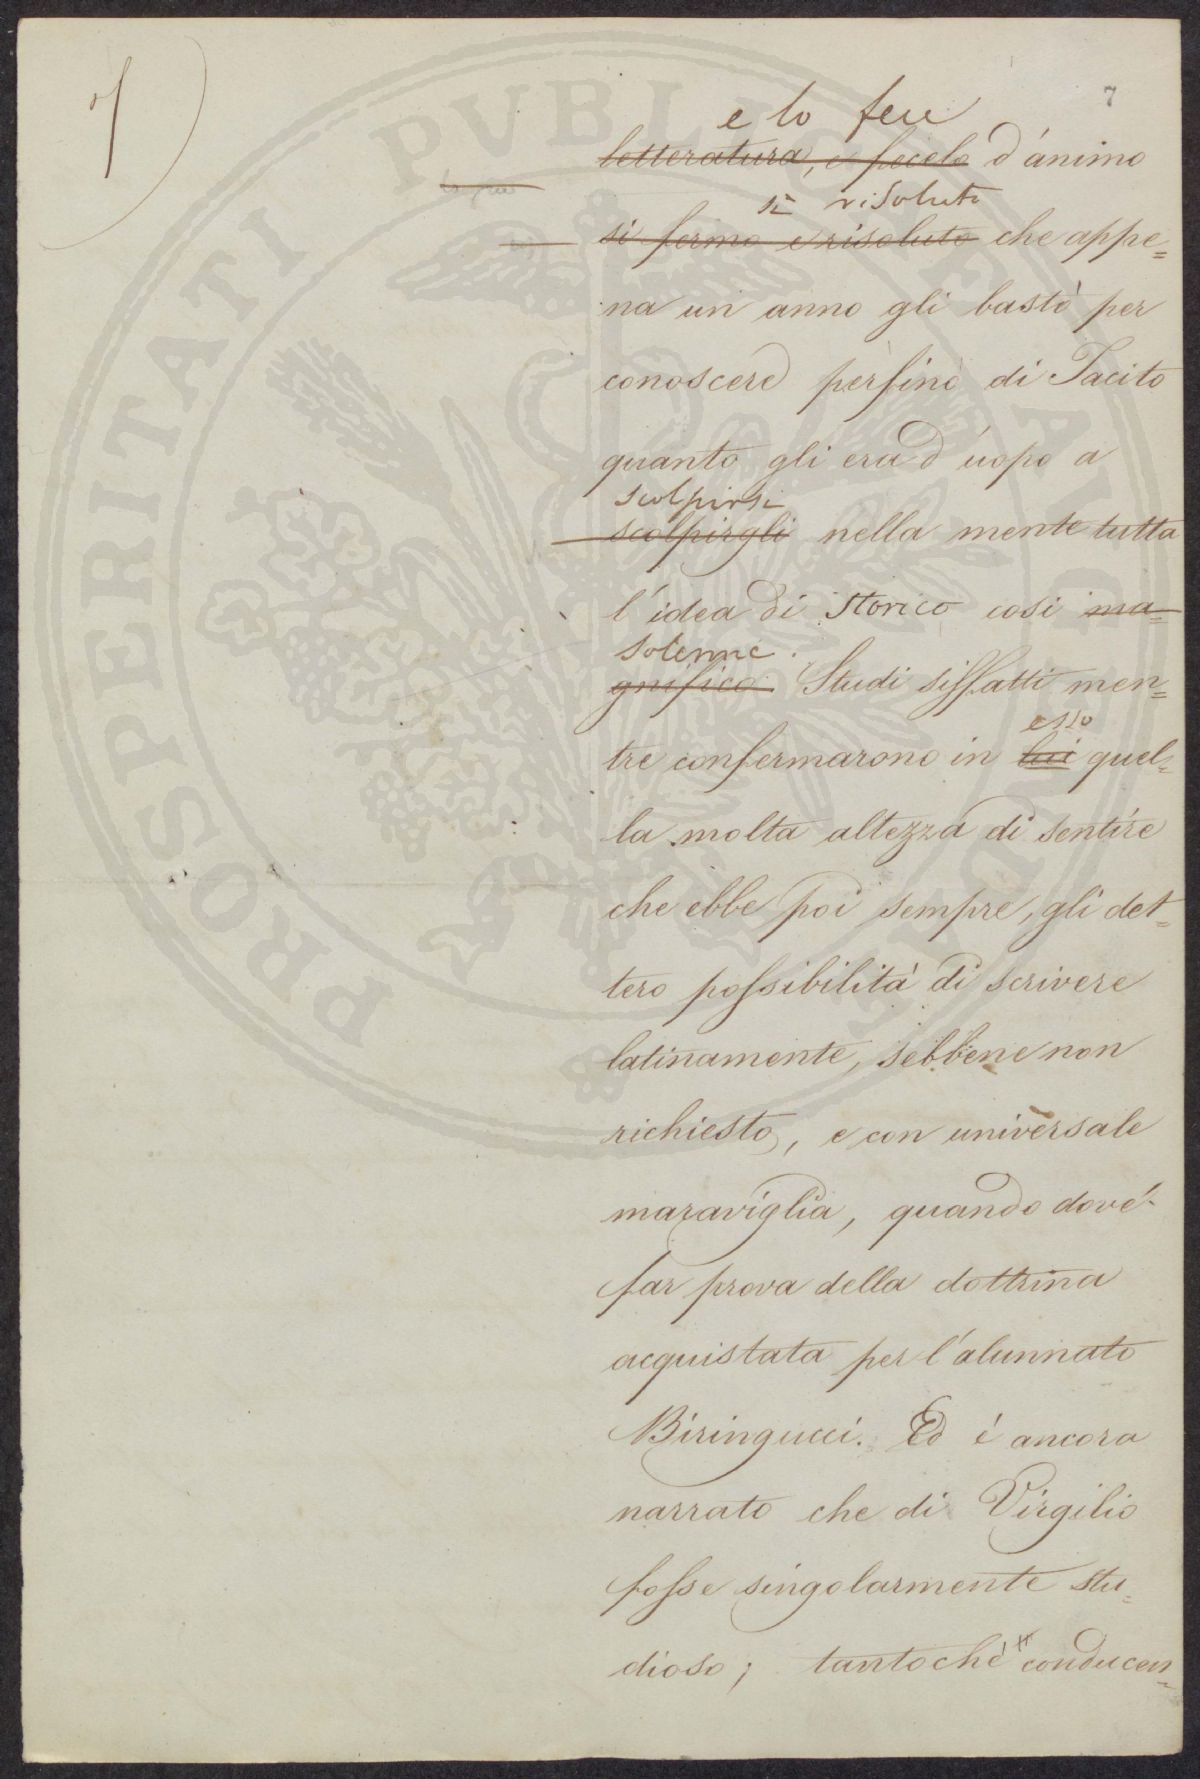 7)
7
e lo fece
letteratura, e fecelo d'animo
sì risoluto
si fermo e risoluto che appe=
na un anno gli bastò per
conoscere perfino di Tacito
quanto gli era d'uopo a
scolpirsi
scolpirgli nella mente tutta
l'idea di storico così ma=
solenne.
gnifico. Studi siffatti men=
esso
tre confermarono in lui quel=
la molta altezza di sentire
che ebbe poi sempre, gli det=
tero possibilità di scrivere
latinamente, sebbene non
richiesto, e con universale
maraviglia, quando dové
far prova della dottrina
acquistata per l'alunnato
Biringucci. Ed é ancora
narrato che di Virgilio
fosse singolarmente stu=
dioso; tantoché conducen=
PROSPERITATI PVBLICAE AVGENDAE